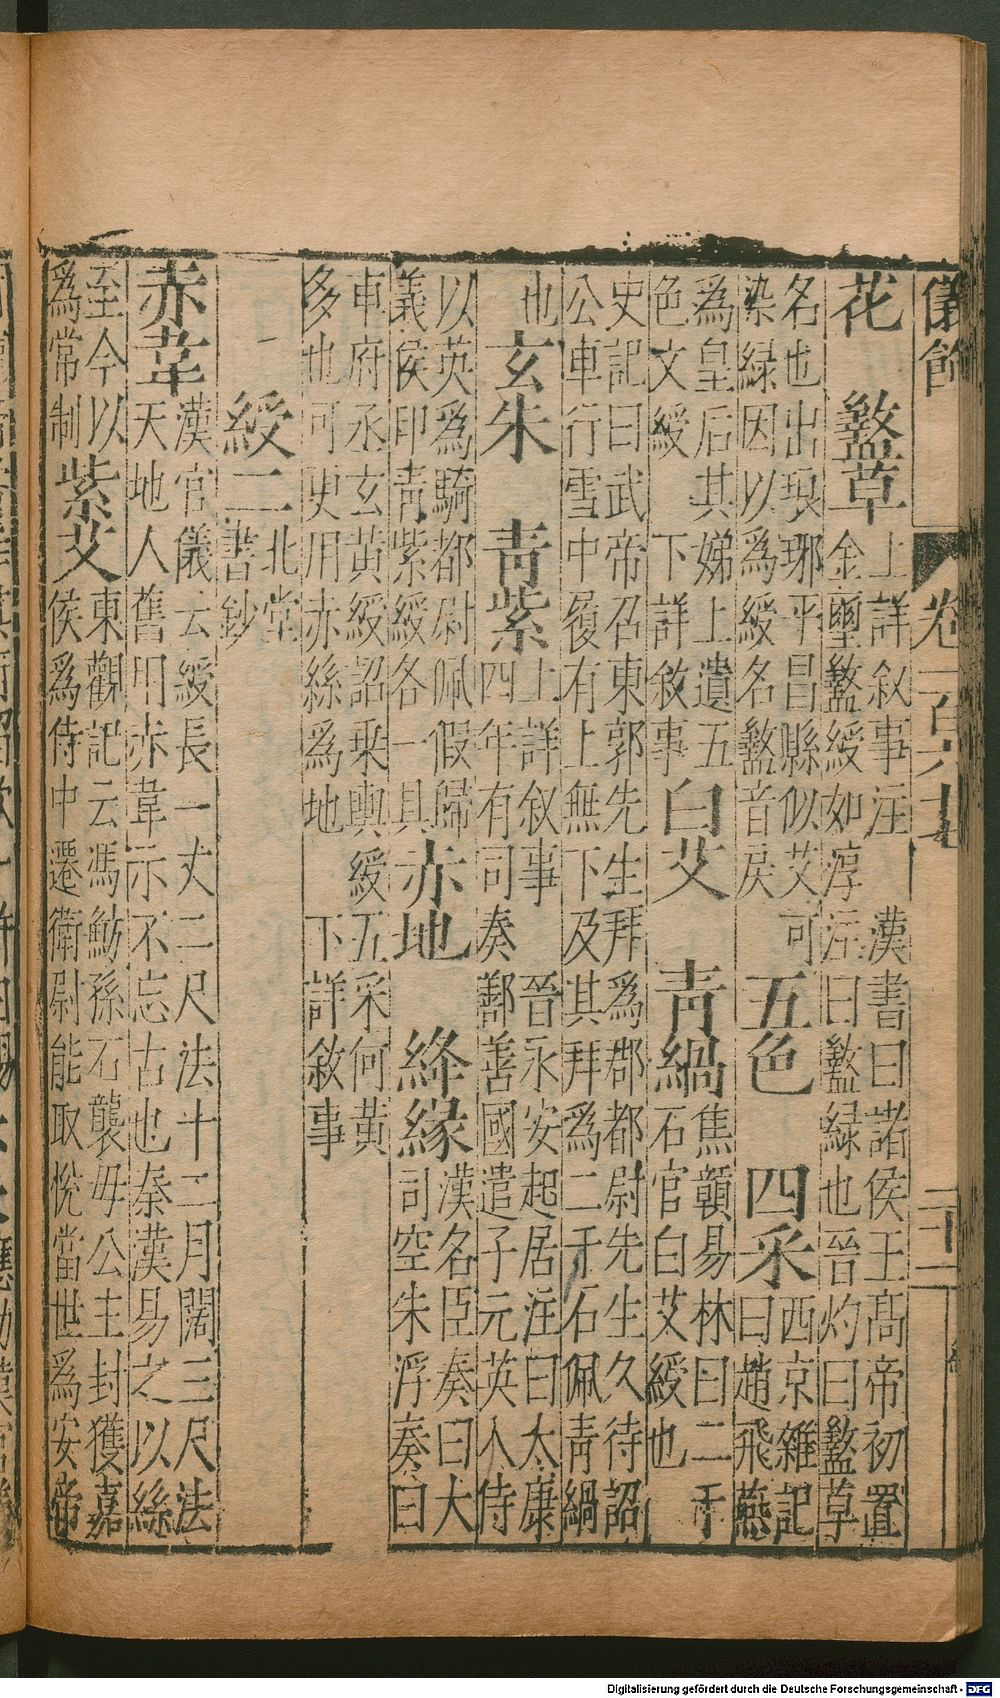 儀飾 卷一百六十七 二十一
花 盭草 上詳叙事注 漢書曰諸侯王高帝初置
金璽盭綬如淳注曰盭綠也晉灼曰盭草
名也出琅琊平昌縣似艾可
染綠因以為綬名盭音戾 五色 四采 西京雜記
曰趙飛燕
為皇后其娣上遺五
色文綬 下詳敘事 白艾 青緺 焦贛易林曰二千
石官白艾綬也
史記曰武帝召東郭先生拜為郡都尉先生久待詔
公車行雪中履有上無下及其拜為二千石佩青緺
也 玄朱 青紫 上詳敘事 晉永安起居注曰太康
四年有司奏鄯善國遣子元英入侍
以英為騎都尉佩假歸
義侯印青紫綬各一具 赤地 絳緣 漢名臣奏曰大
司空朱浮奏曰
車府丞玄黃綬詔乗輿綬五采何黃
多也可更用赤絲為地 下詳敘事
綬二 北堂
書鈔
赤韋 漢官儀云綬長一丈二尺法十二月闊三尺法
天地人舊用赤韋示不忘古也秦漢易之以絲
至今以
為常制 紫艾 東觀記云馮魴孫石襲毋公主封獲嘉
侯為侍中遷衛尉能取悅當世為安帝
Digitalisierung gefördert durch die Deutsche Forschungsgemeinschaft - DFG